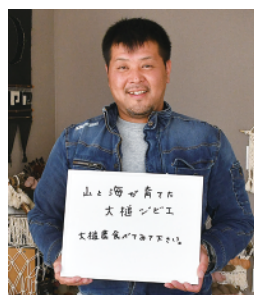 山と海が育てた
大槌ジビエ
大槌鹿食べてみて下さい。